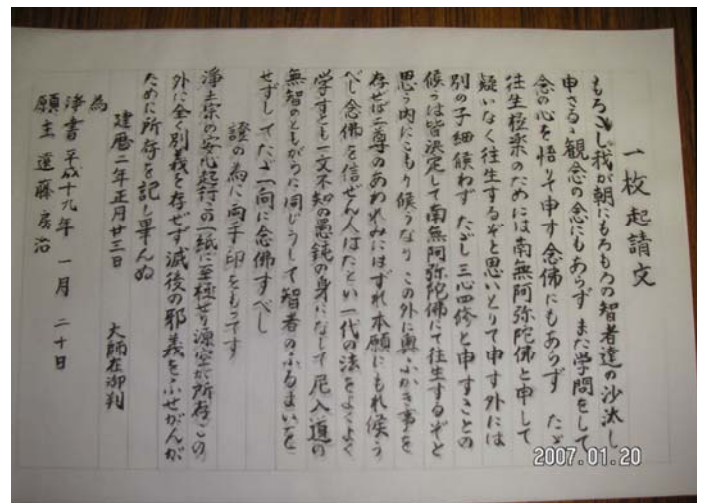 一枚起請文
もろこし我が朝にもろもろの智者達の沙汰し
申さるゝ観念の念にもあらず また学問をして
念の心を悟りて申す念佛にもあらず たゞ
往生極楽のためには南無阿弥陀佛と申して
疑いなく往生するぞと思いとりて申す外には
別の子細候わず たゞし三心四修と申すことの
候うは皆決定して南無阿弥陀佛にて往生するぞと
思う内にこもり候うなり この外に奥ふかき事を
存ぜば二尊のあわれみにはずれ本願にもれ候う
べし 念佛を信ぜん人はたとい一代の法をよくよく
学すとも一文不知の愚鈍の身になして 尼入道の
無智のともがらに同じうして智者のふるまいを
せずしてたゞ一向に念佛すべし
證の為に両手印をもってす
浄土宗の安心起行この一紙に至極せり源空が所存この
外に全く別義を存ぜず滅後の邪義をふせがんが
ために所存を記し畢んぬ
建暦二年正月廿三日 大師在御判
為
浄書 平成十九年 一月 二十日
願主 遠藤房治
2007.01.20